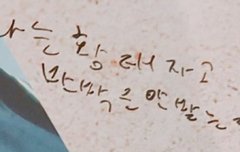 나는 황태자고
반박은 안 받는